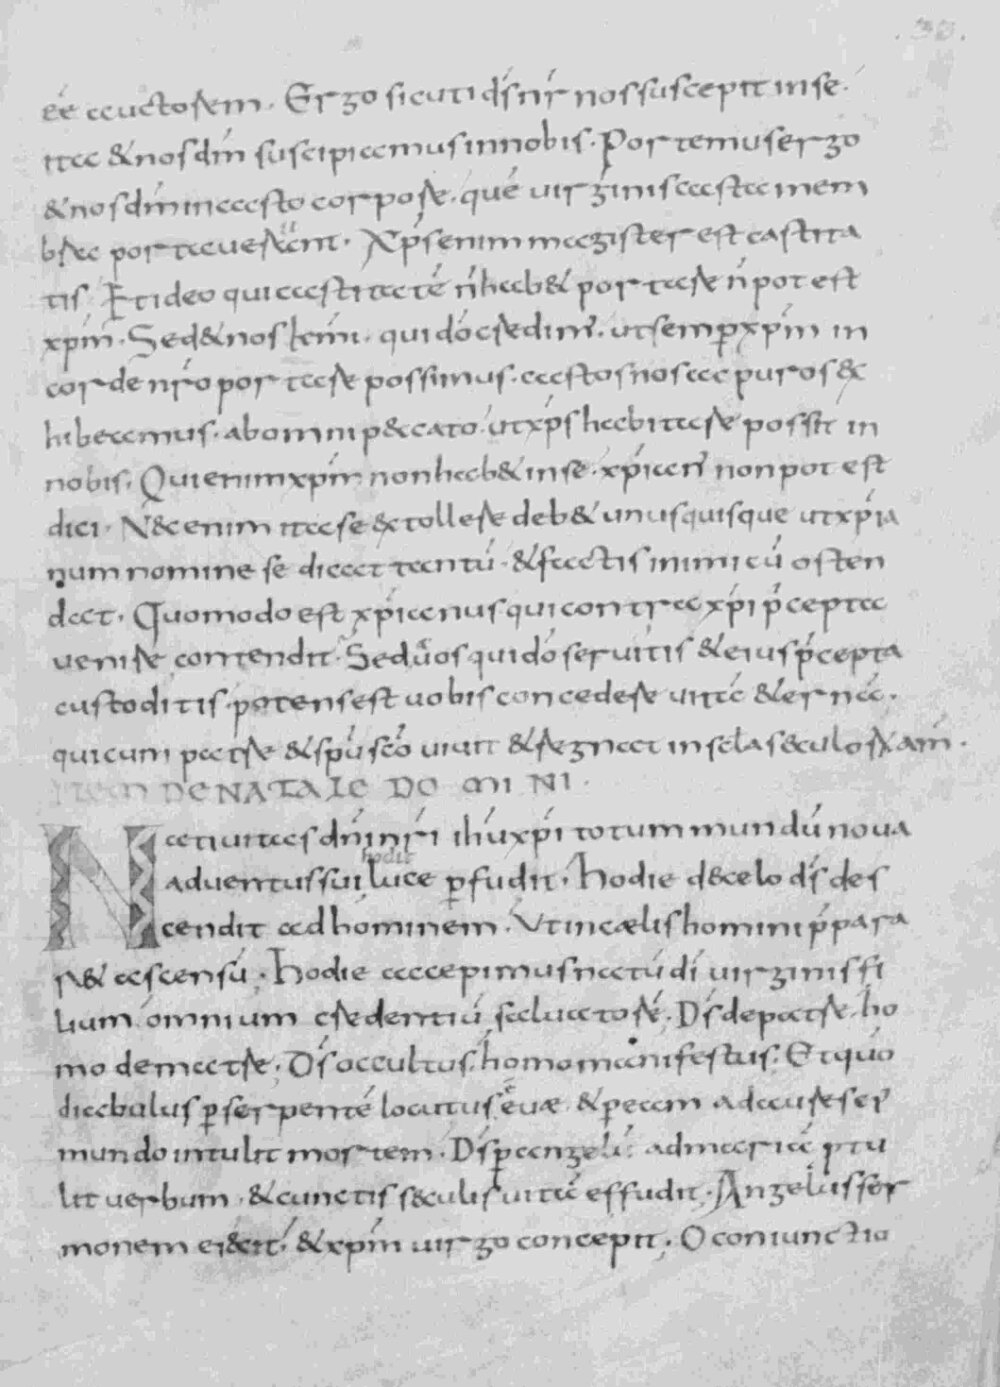 .33.
eē auctorem. Ergo sicuti ds̄ nr̄ nos suscepit in se.
ita & nos dm̄ suscipiamus in nobis. Portemus ergo
& nos dm̄ in casto corpore. quē virginis casta mem
bra portaverunt. Xps̄ enim magister est castita
tis. Et ideo qui castitatē n̄ hab& portare n̄ potest
xpm̄. Sed & nos km̄i. qui dō credimꝰ. ut semp̄ xpm̄ in
corde nrō portare possimus. castos nos ac puros &x
hibeamus. ab omni p&cato. ut xps̄ habitare possit in
nobis. Qui enim xpm̄ non hab& in se. xp̄ian᷒ non potest
dici. N& enim ita se &xtollere deb& unusquisque ut xp̄ia
num nomine se dicat tantū. & factis inimicū osten
dat. Quomodo est xp̄ianus qui contra xp̄i p̄cepta
venire contendit. Sed vos qui dō servitis & eius p̄cepta
custoditis. potens est vobis concedere vitā & ernā.
qui cum patre & sp̄u scō vivit & regnat in scla s&culorx am̄.
ITEM DE NATALE DOMINI.
Nativitas dn̄i nr̄i ih̄u xp̄i totum mundū nova
hodie
adventus sui luce p̄fudit. Hodie d& celo ds̄ des
cendit ad hominem. Ut in cælis homini p̄para
r& ascensū. Hodie accepimus natū dī virginis fi
lium. omnium credentiū salvatorē. Ds̄ de patre. ho
mo de matre. Ds̄ occultus. homo manifestus. Et quō
diabulus p̄ serpentē locutus evæ. & p̄ eam adcurese
mundo intulit mortem. Ds̄ p̄ angelū ad mariā p̄tu
lit verbum. & cunctis s&culis vitā effudit. Angelus ser
monem ei&cit. & xpm̄ virgo concepit. O coniunctio